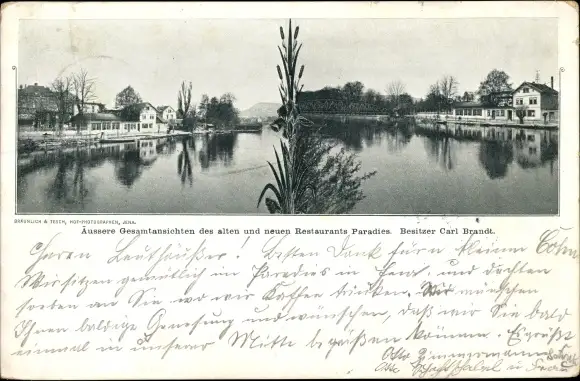 BRÄUNLICH & TESCH, HOF-PHOTOGRAPHEN, JENA.
Äussere Gesamtansichten des alten und neuen Restaurants Paradies. Besitzer Carl Brandt.
Herrn Leuthäußer! Besten Dank fürn kleinen
Wir sitzen gemütlich im Paradies in Jena und dachten
soeben an Sie wo wir Kaffee trinken. Wir wünschen
Ihnen baldige Genesung und wünschen, daß wir Sie bald
einmal in unserer Mitte begrüßen können. Es grüßt
Otto Zimmermann
Otto u Frau